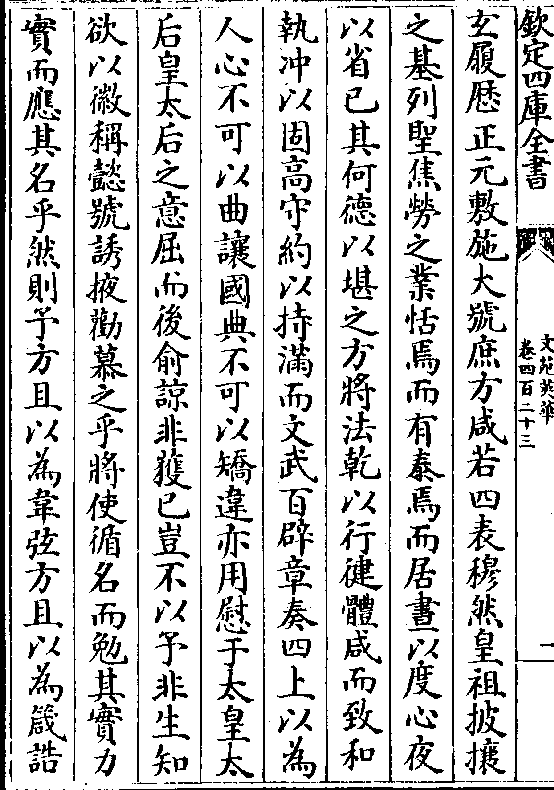 欽定四庫全書
文苑英華
卷四百二十三
一
玄履歷正元敷施大號庶方咸若四表穆然皇祖披攘
之基列聖焦勞之業恬焉而有泰焉而居晝以度心夜
以省已其何德以堪之方將法乾以行健體咸而致和
執沖以固高守約以持滿而文武百辟章奏四上以為
人心不可以曲讓國典不可以矯違亦用慰于太皇太
后皇太后之意屈而後俞諒非獲已豈不以予非生知
欲以徽稱懿號誘掖勸慕之乎將使循名而勉其實力
實而應其名乎然則予方且以為韋弦方且以為箴誥